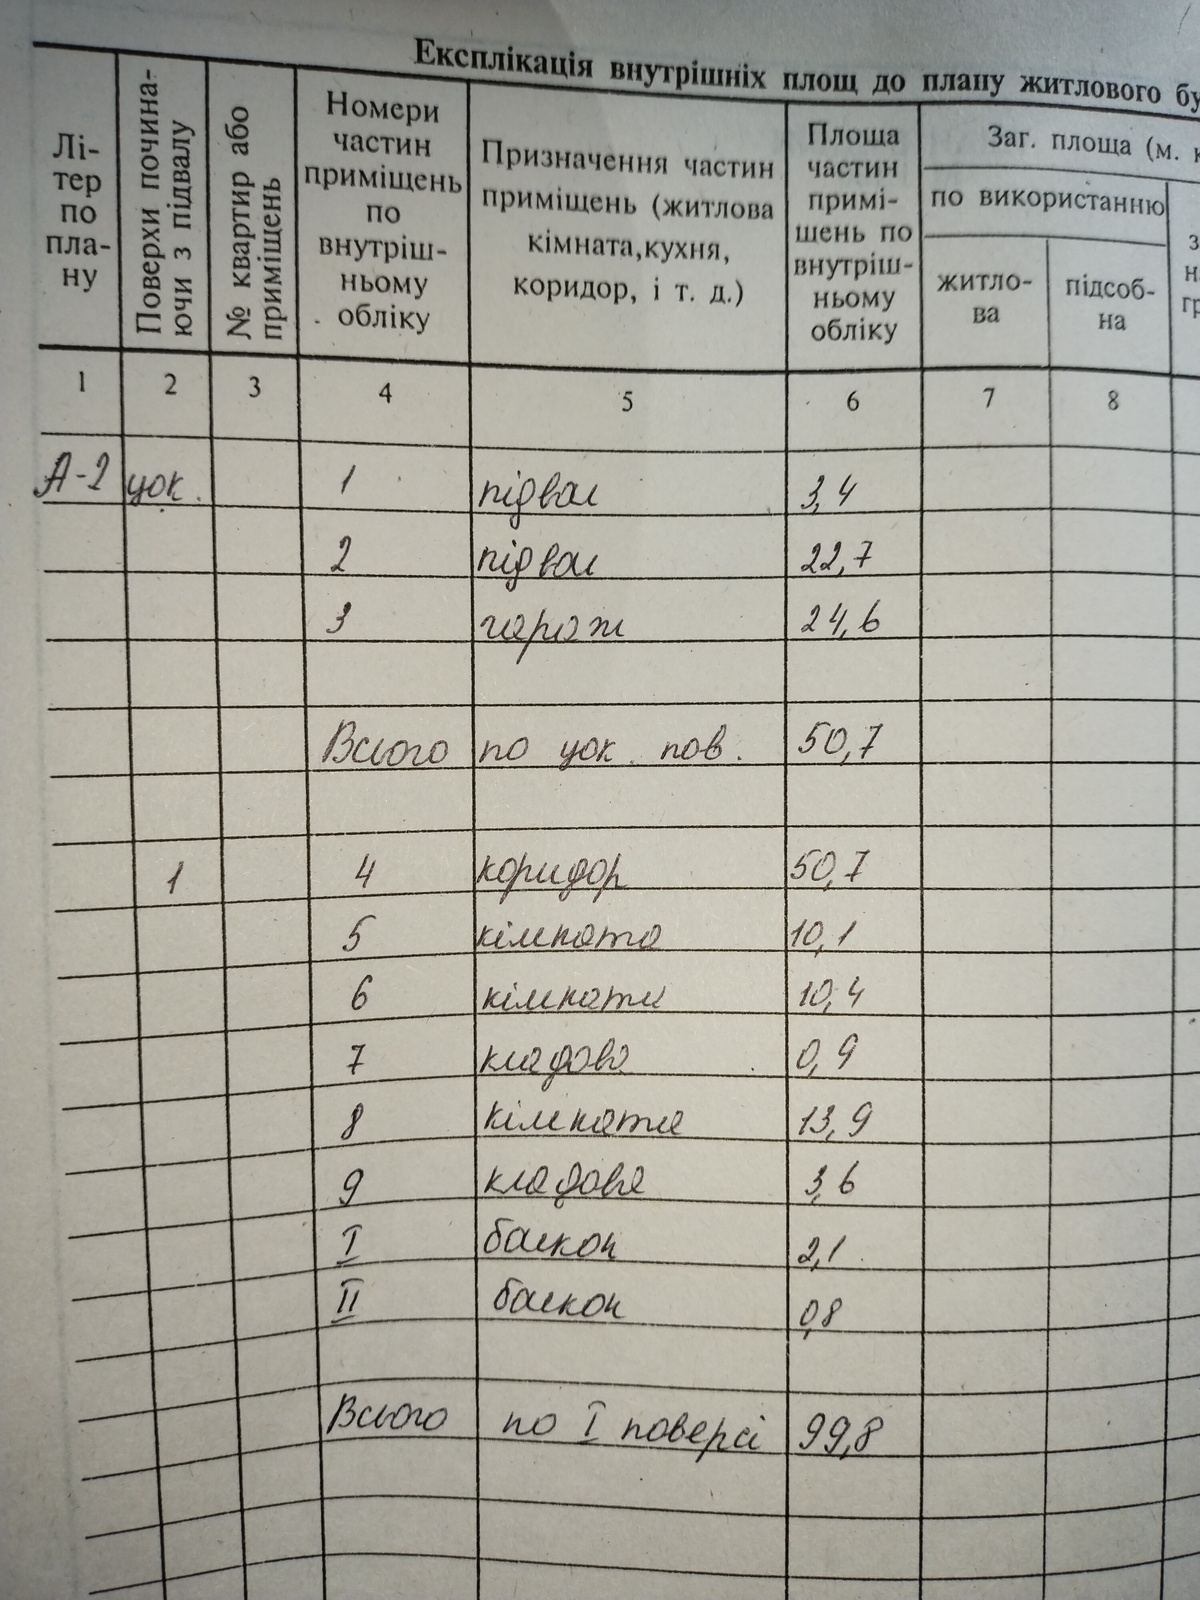 Експлікація внутрішніх площ до плану житлового бу
Лі-
тер
по
пла-
ну
Поверхи почина-
ючи з підвалу
№ квартир або
приміщень
Номери
частин
приміщень
по
внутріш-
ньому
обліку
Призначення частин
приміщень (житлова
кімната,кухня,
коридор, і т. д.)
Площа
частин
примі-
шень по
внутріш-
ньому
обліку
Заг. площа (м. к
по використанню
житло-
ва
підсоб-
на
1 2 3 4 5 6 7 8
А-2 цок. 1 підвал 3,4
2 підвал 22,7
3 гараж 24,6
Всього по цок. пов. 50,7
1 4 коридор 50,7
5 кімната 10,1
6 кімната 10,4
7 кладова 0,9
8 кімната 13,9
9 кладова 3,6
I балкон 2,1
II балкон 0,8
Всього по I поверсі 99,8